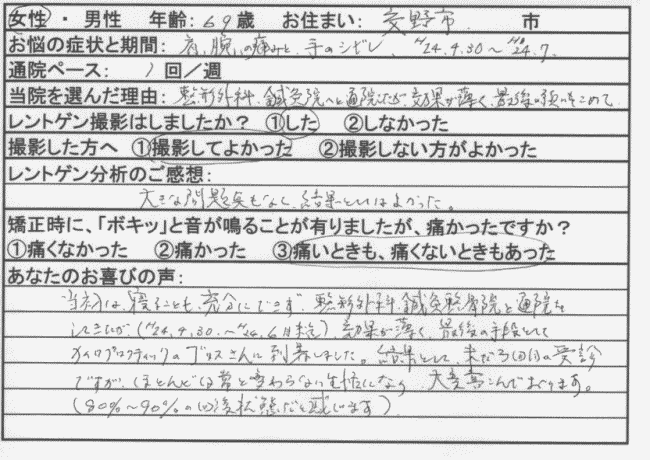 女性 ・ 男性 年齢：69歳 お住まい：交野市 市
お悩の症状と期間：肩、腕、の痛みと、手のシビレ、H24.4.30～H24.7.
通院ペース： 1回／週
当院を選んだ理由：整形外科、鍼灸院へと通院したが、効果が薄く、最後の願いをこめて
レントゲン撮影はしましたか？ ①した ②しなかった
撮影した方へ ①撮影してよかった ②撮影しない方がよかった
レントゲン分析のご感想：
大きな問題点もなく、結果としてはよかった。
矯正時に、「ボキッ」と音が鳴ることが有りましたが、痛かったですか？
①痛くなかった ②痛かった ③痛いときも、痛くないときもあった
あなたのお喜びの声：
当初は、寝ることも、充分にできず、整形外科、鍼灸整骨院と通院を
してきたが（H24.4.30.～H24.6月末迄）効果が薄く、最後の手段として
カイロプラクティックのプリスさんに到着しました。結果として、未だ5回目の受診
ですが、ほとんど日常と変わらない生活になり、大変喜こんでおります。
（80%～90%の回復状態だと感じます）